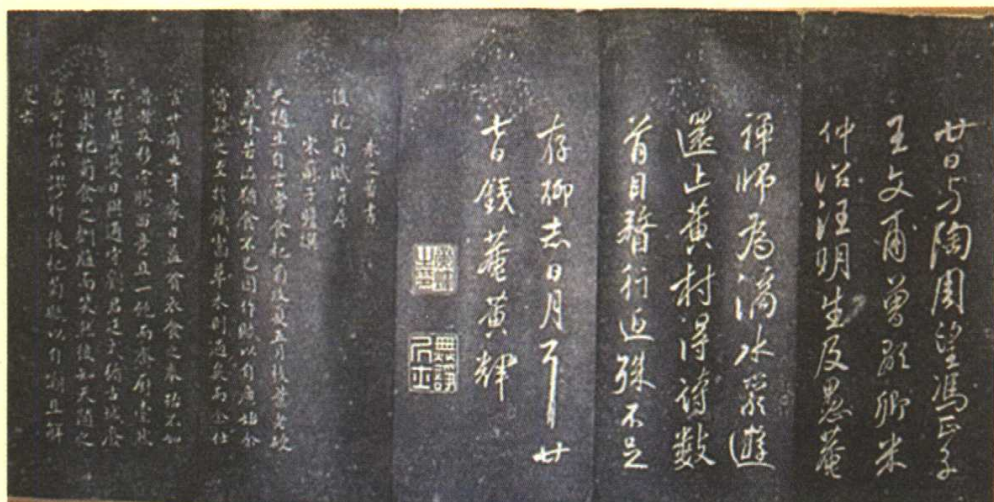 廿日与陶周望馮正子
王文甫曾 卿米
仲治汪明生及愚菴
禪師為滴水巖遊
還止黃村得詩數
首目 行近殊不足
存聊志日月耳廿
 錢菴黃輝
後杞菊賦有序
宋蘇子瞻撰
天隨生自言常食杞菊及夏五月枝葉老硬
氣味苦澀猶食不已因作賦以自廣始余
嘗疑之至於 草木則過矣而余仕
宦十有九年家日益貧衣食之奉殆不如
昔者及移守膠西意且一飽而齋廚索然
不堪其憂日與通守劉君廷式循古城廢
圃求杞菊食之捫腹而笑然後知天隨之
言可信不謬作後杞菊賦以自嘲且解
之云